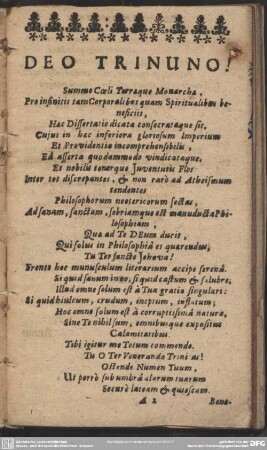 DEO TRINUNO!
Summo Cœli Terræque Monarchæ,
Pro infinitis tam Corporalibus quam Spiritualibus be-
neficiis,
Hac Dissertatio dicata consecrataque sit,
Cujus in hac inferiora gloriosum Imperium
Et Providentia incomprehensibilis,
Ea asserta quodammodo vindicataque,
Et nobilis tenerque Juventutis Flos
Inter tot discrepantes, & non rarò ad Atheismum
tendentes
Philosophorum neotericorum sectas,
Ad sanam, sanctam, sobriamque est manuducta Phi-
losophiam,
Qua ad Te DEum ducit,
Qui solus in Philosophiâ es quærendus,
Tu Ter sancte Jehova!
Fronte hoc munusculum literarium accipe serenâ.
Si quid sanum inest, si quid castum & salubre,
Illud omne solum est à Tua gratia singulari:
Si quid hiulcum, crudum, ineptum, inflatum;
Hoc omne solum est à corruptissimâ naturâ,
Sine Te nihil sum, omnibusque expositus
Calamitatibus.
Tibi igitur me Totum commendo.
Tu O Ter Veneranda Trinitas!
Ostende Numen Tuum,
Ut porrò sub umbrâ alarum tuarum
Securè lateam & quiescam.
A 2 Bene-